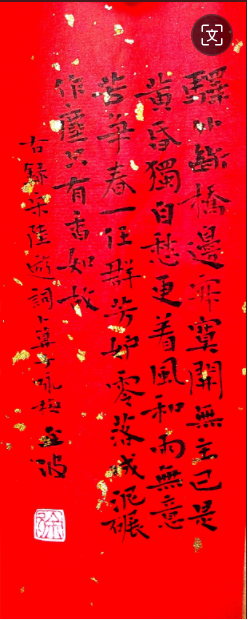 驛外斷橋邊寂寞開無主已是
黃昏獨自愁更着風和雨無意
苦爭春一任群芳妒零落成泥碾
作塵只有香如故
右錄宋陸游詞卜算子咏梅 波